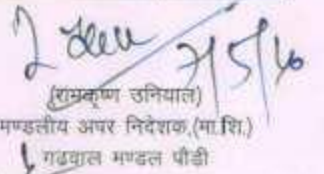 7/5/10
(रामकृष्ण उनियाल)
मण्डलीय अपर निदेशक,(मा.शि.)
गढवाल मण्डल पौडी